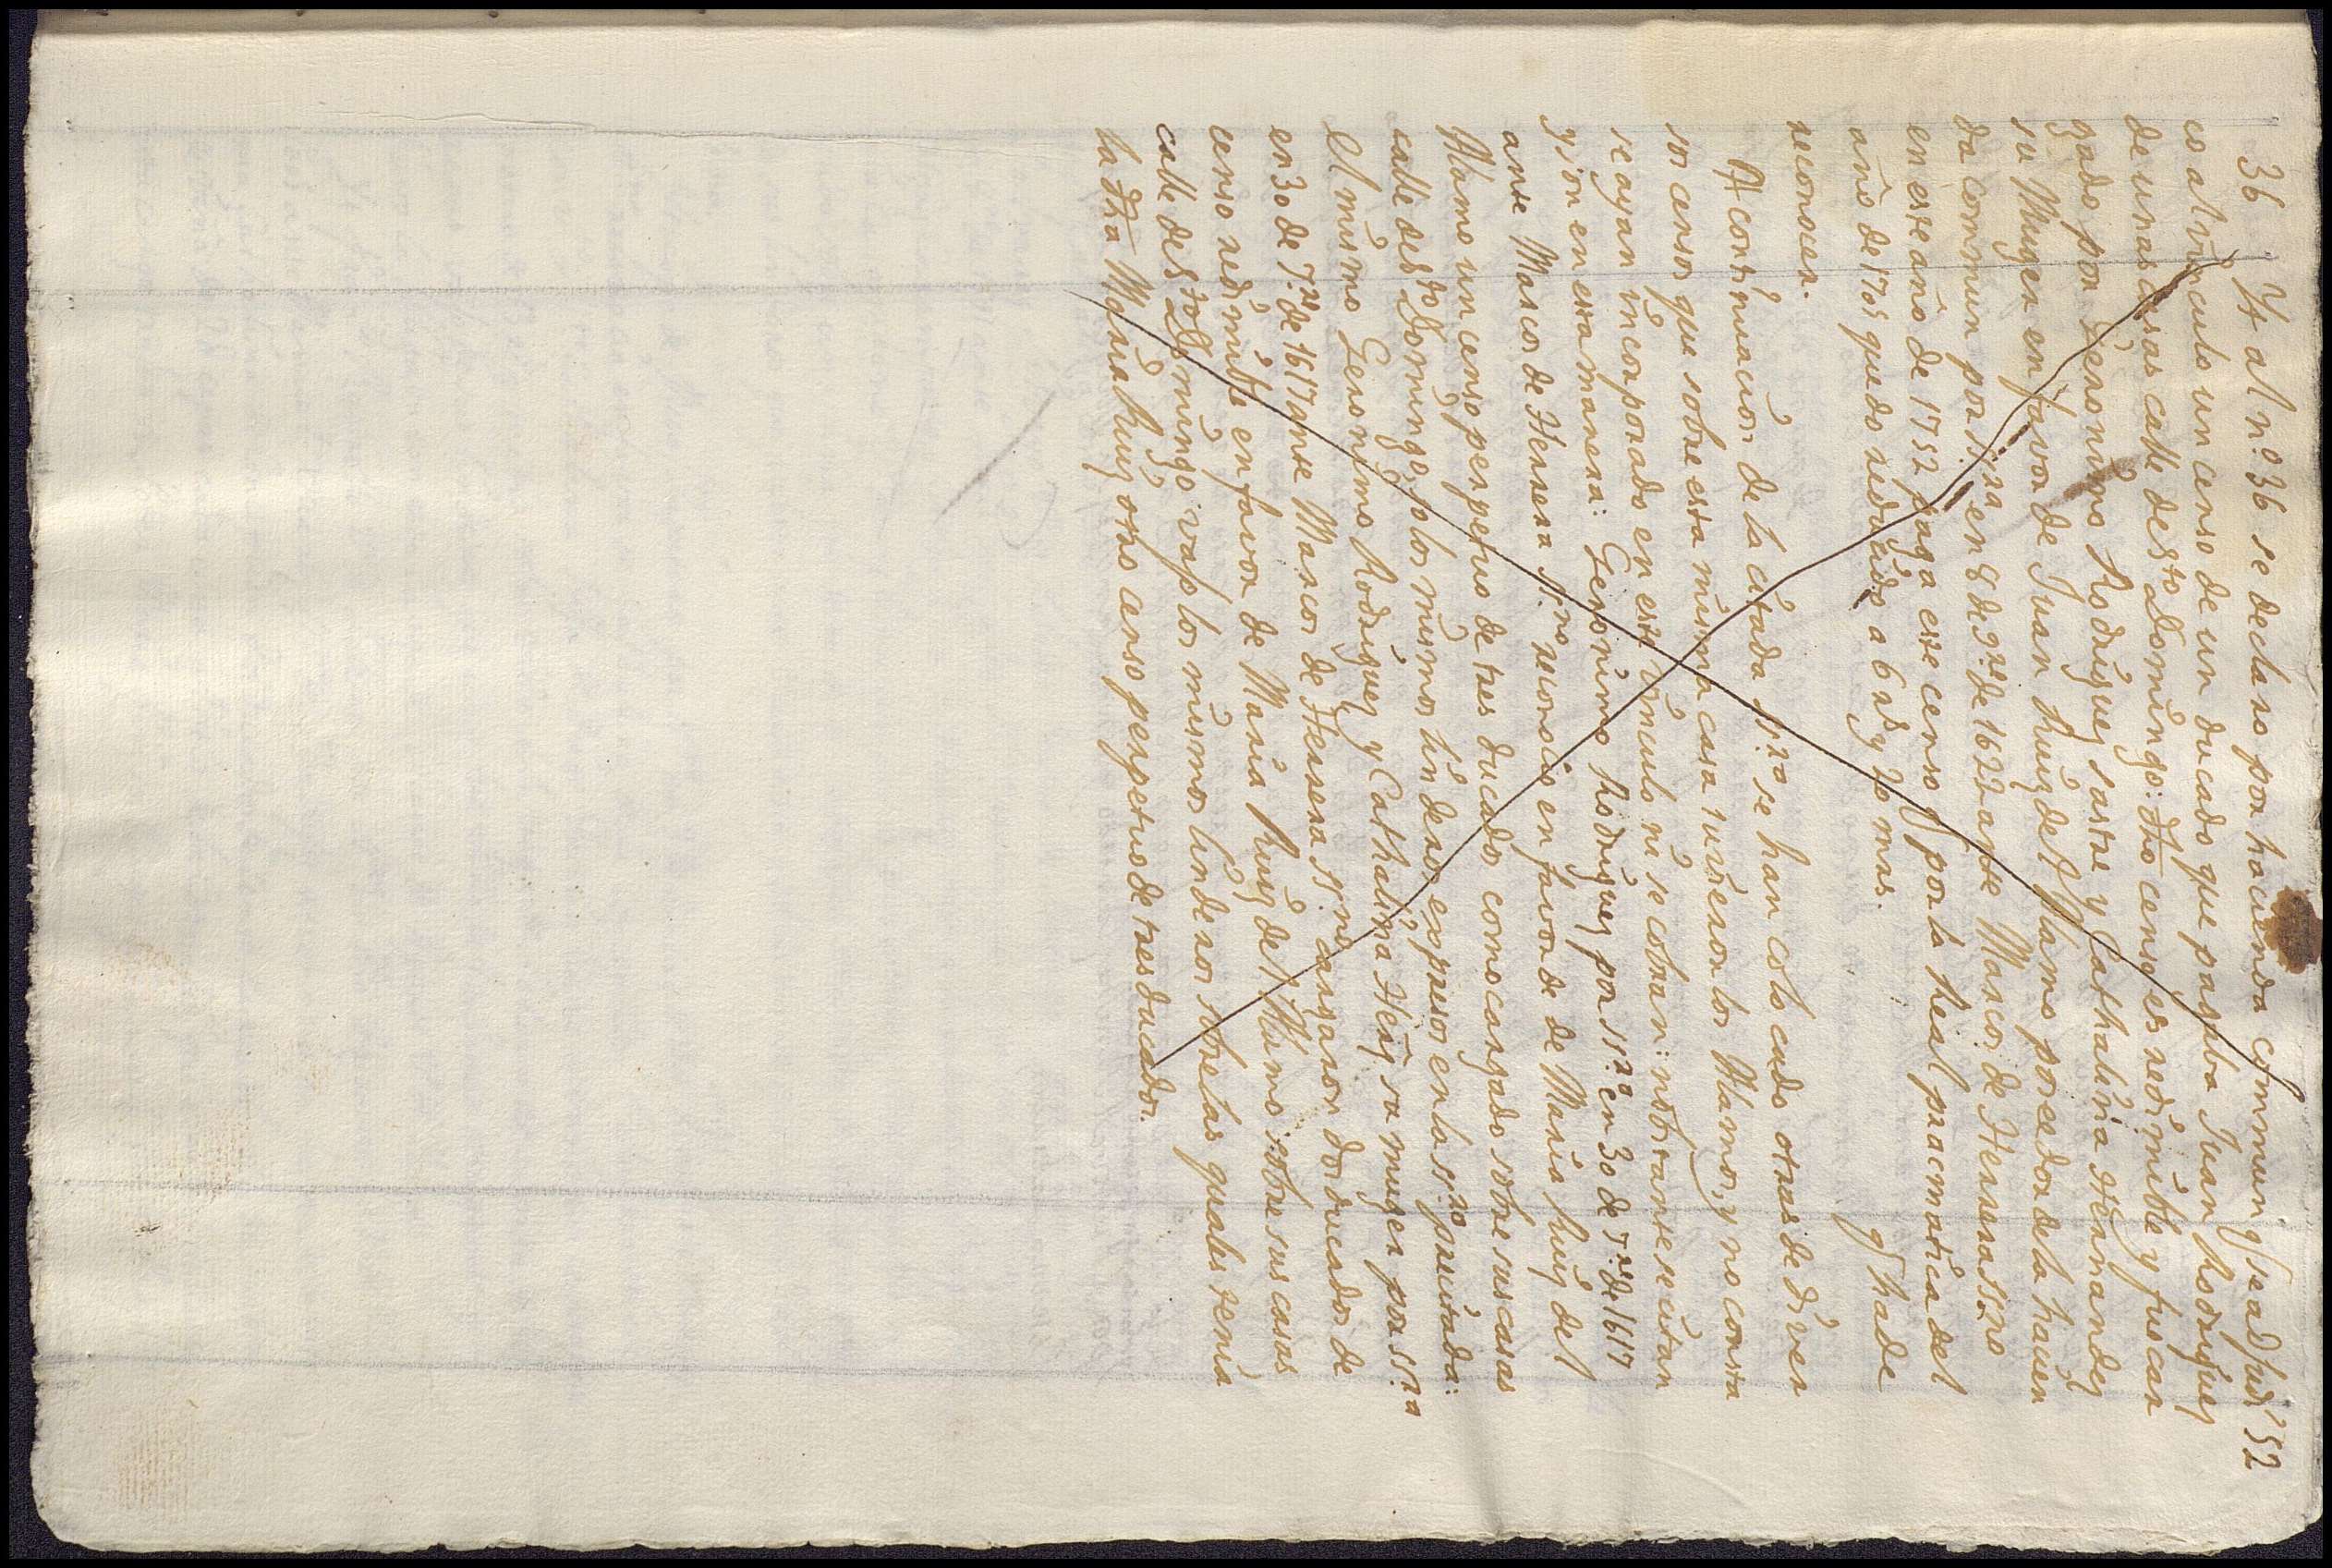 36 Yt al n.º 36 se declaro por hacienda commun q̃ se adjudi 52
co al vinculo un censo de un ducado que pagaba Juan Rodriguez
de unas casas calle de Sto Domingo: dho censo es redimible y fue car
gado por Geronimo Rodriguez sastre y Cathalina Hernandez
su Muger en favor de Juan Ruiz del Alamo poseedor de la hacien
da commun por ss.ra en 8 de 9.re de 1622 ante Marcos de Herrera ss.no
en este año de 1752 paga este censo q̃ por la Real pracmatica del
año de 1705 quedo reducido a 6 rs y 20 mrs. q̃ ha de
reconocer.
A continuacion de la citada ss.ra se han colocado otras de diver
sos censos que sobre esta misma casa tuvieron los Alamos, y no consta
se ayan incorporado en este vinculo ni se cobran: no obstante se citan
y son en esta manera: Geronimo Rodriguez por ss.ra en 30 de 7.re de 1617
ante Marcos de Herrera ss.no reconocio en favor de Maria Ruiz del
Alamo un censo perpetuo de tres ducados como cargado sobre sus casas
calle de Sto Domingo, so los mismos linderos expresos en la ss.ra precitada:
El mismo Geronymo Rodriguez y Cathalina Hern̄z su muger por ss.ra
en 30 de 7.re de 1617 ante Marcos de Herrera ss.no cargaron dos ducados de
censo redimible en favor de Maria Ruiz del Alamo sobre sus casas
calle de Sto Domingo vajo los mismos linderos sobre las quales tenia
la dha Maria Ruiz otro censo perpetuo de tres ducados.